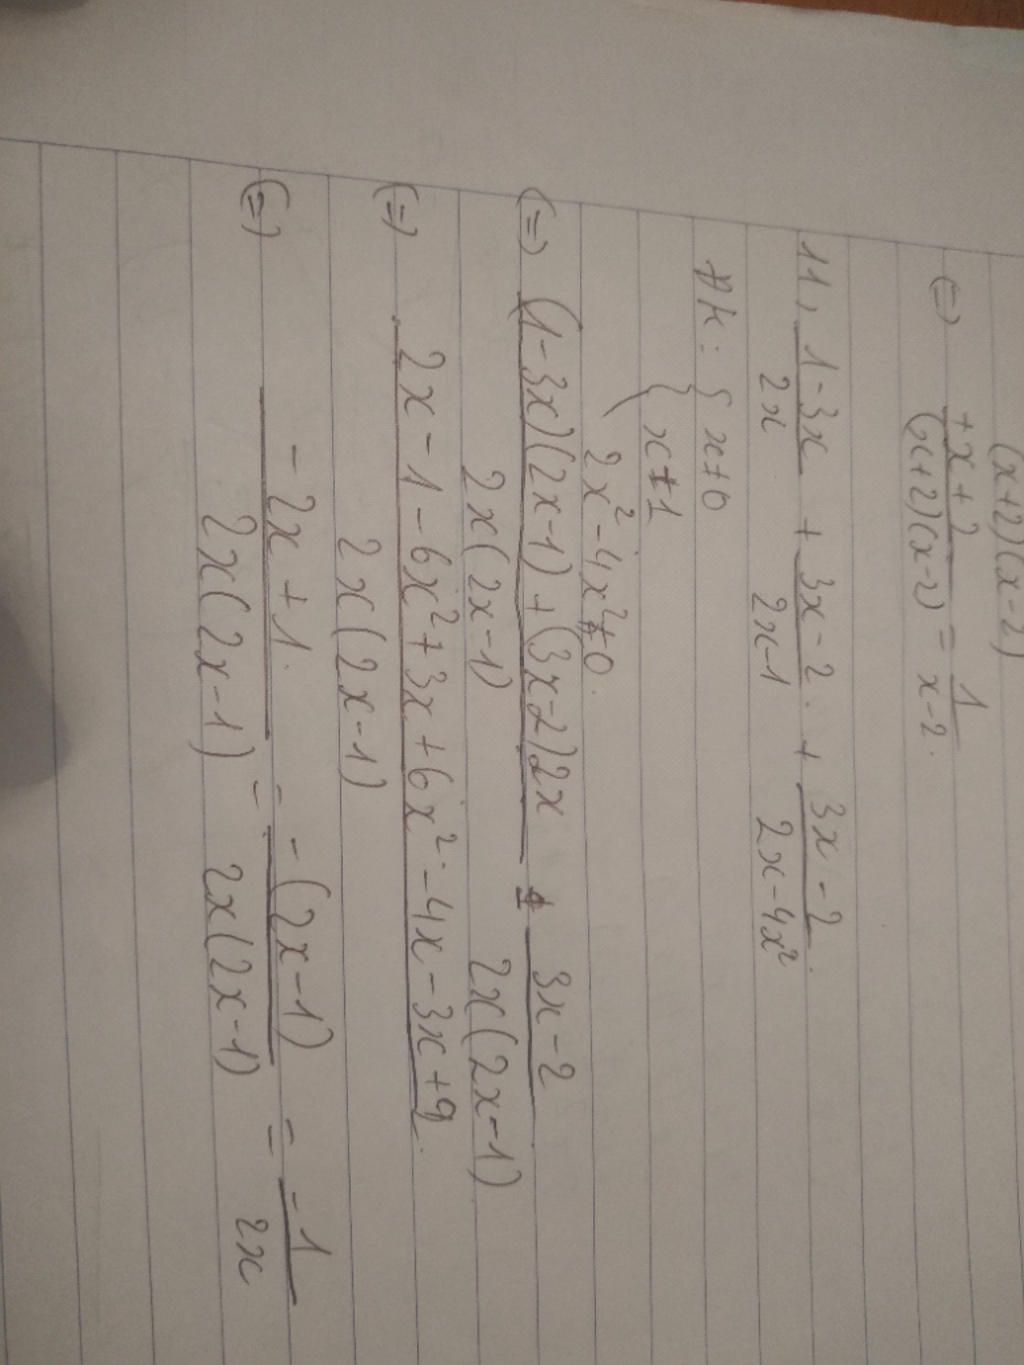 (x+2)(x-2)
(=) +x+2/(x+2)(x-2) = 1/x-2.
11, 1-3x/2x + 3x-2/2x-1 + 3x-2/2x-4x²
ĐK: { x≠0
x≠1
2x²-4x²≠0.
(=) (1-3x)(2x-1)+(3x-2)2x/2x(2x-1) + 3x-2/2x(2x-1)
(=) 2x-1-6x²+3x+6x²-4x-3x+2/2x(2x-1)
(=) -2x+1/2x(2x-1) = -(2x-1)/2x(2x-1) = -1/2x